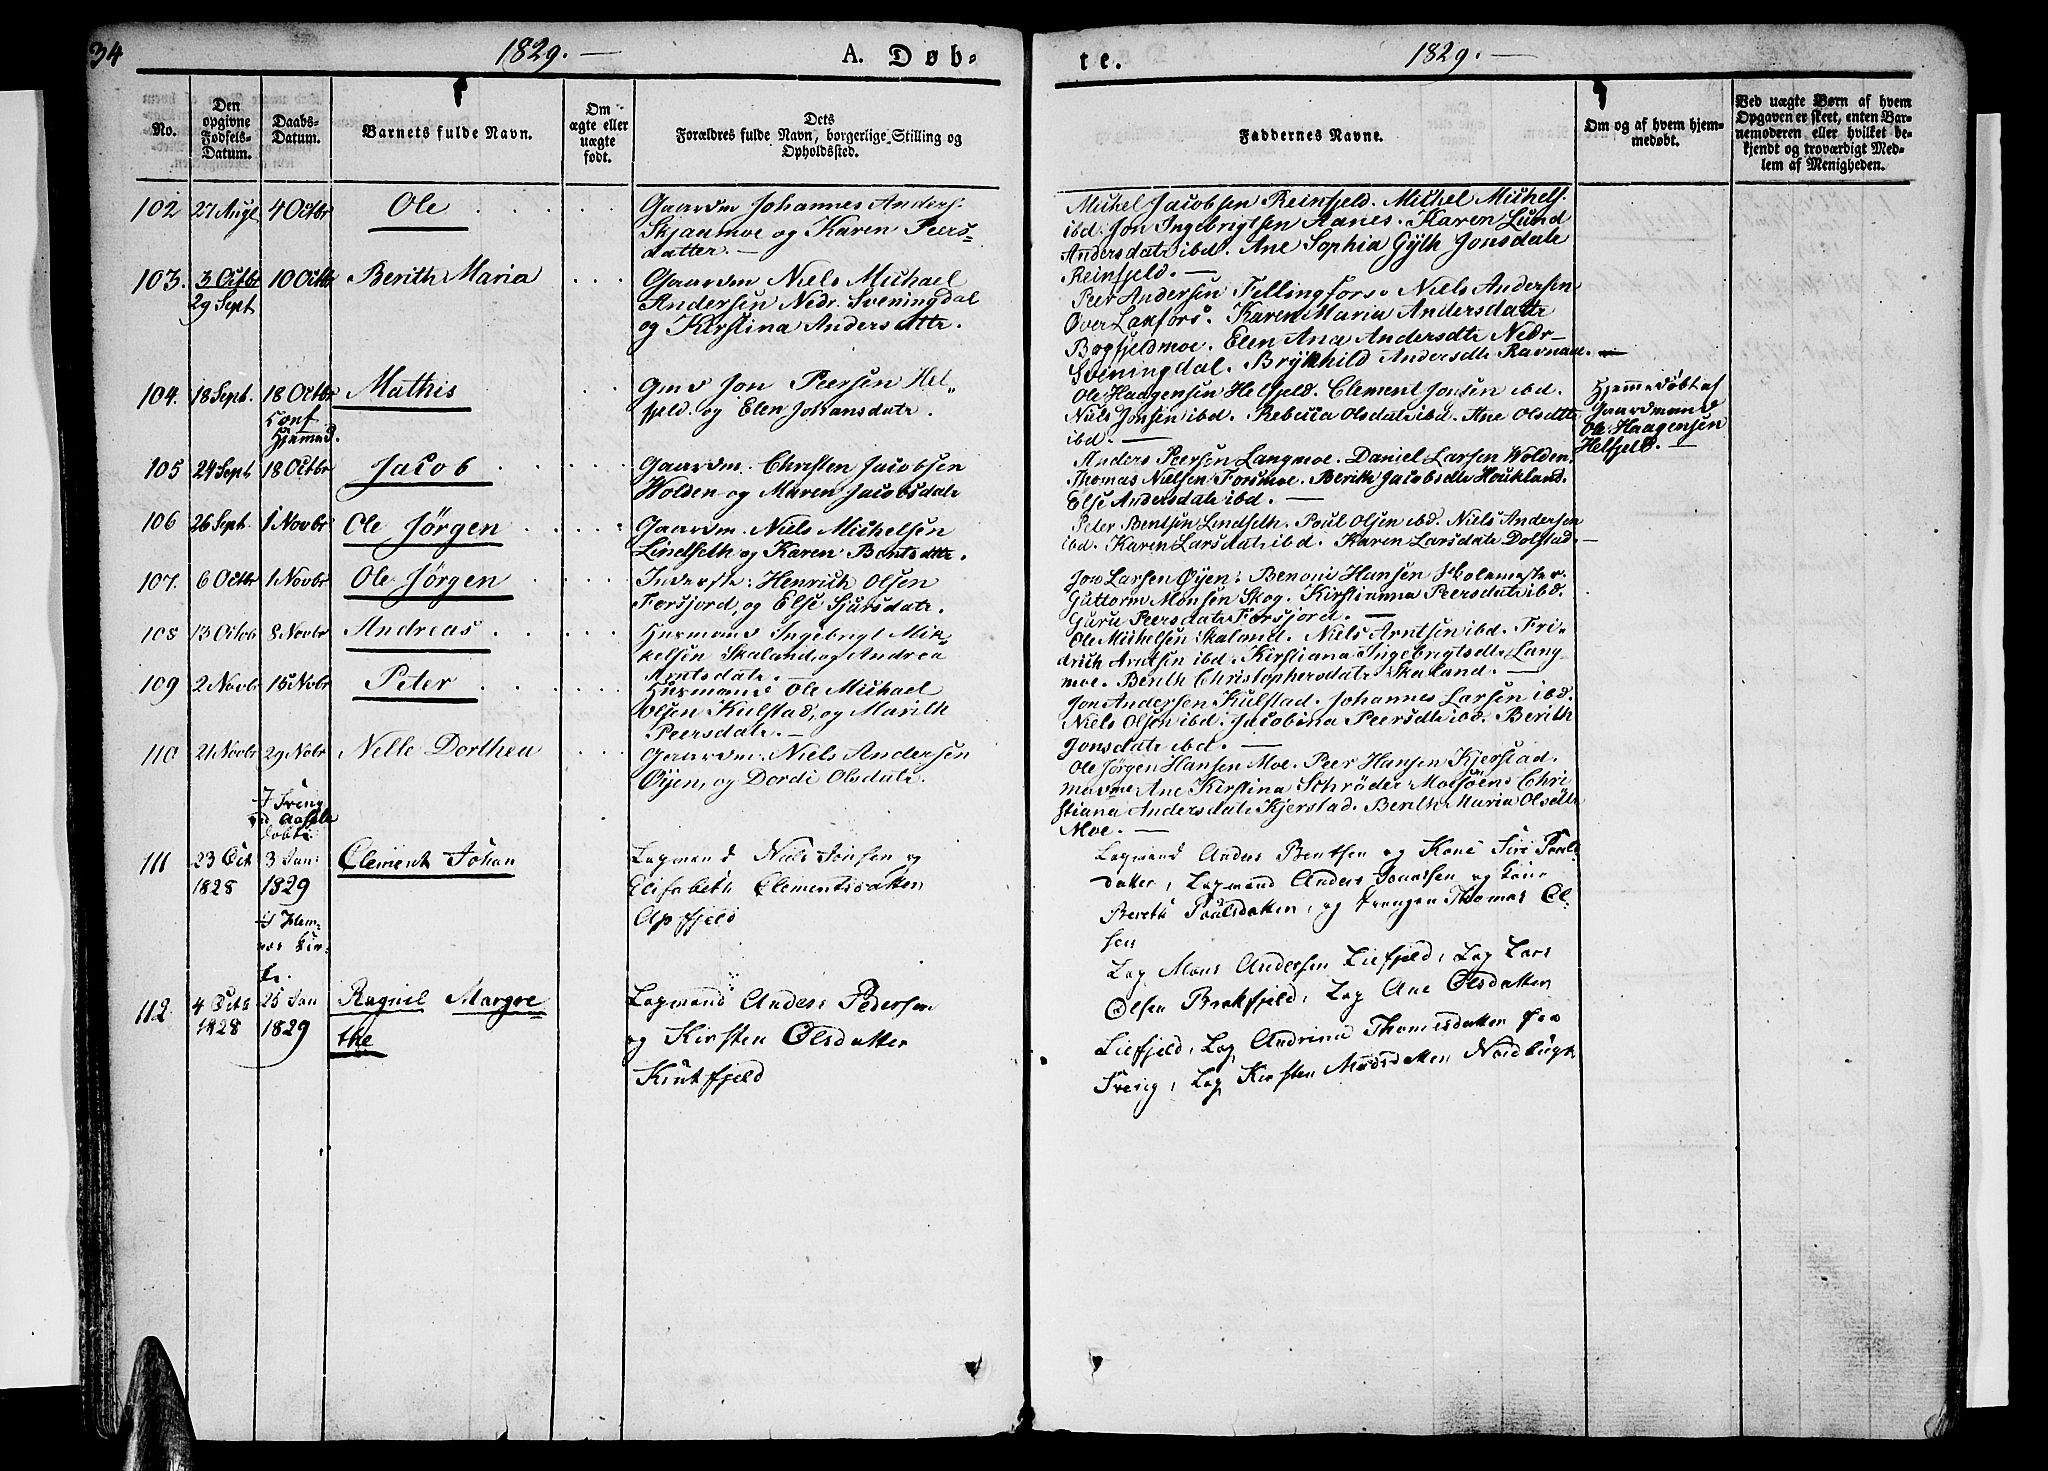 34
1829.
A. Døb-
te.
1829.
No.
Den
opgivne
Fødsels-
Datum.
Daabs-
Datum.
Barnets fulde Navn.
Om
ægte eller
uægte
født.
Dets
Forældres fulde Navn, borgerlige Stilling og
Opholdssted.
Faddernes Navne.
Om og af hvem hjem-
medøbt.
Ved uægte Børn af hvem
Opgaven er skeet, enten Bar-
nemoderen eller hvilket be-
kjendt og troværdigt Med-
lem af Menigheden.
102 27 Augt 4 Octbr Ole
Gaardm Johannes Anders.
Skjaumoe og Karen Peers-
datter.
Michel Jacobsen Reinfjeld. Michel Michels.
ibd. Jon Ingebrigtsen Aanes. Karen Lund
Andersdatr ibd. Ane Sophia Gÿth Jonsdatr
Reinfjeld.
103. 3 Octbr 10 Octbr Berith Maria
29 Sept
Gaardm Niels Michael
Andersen Nedr. Sveningdal
og Kirstina Andersdttr.
Peer Andersen Fellingfors. Niels Andersen
Øver Laxfors. Karen Maria Andersdatr
Bogfjeldmoe. Elen Ana Andersdtr Nedr
Sveningdal. Brÿnhild Andersdtr Ravnaa.
104. 18 Sept. 18 Octbr Mathis
Conf
Hjemmed.
Gmd Jon Peersen Hel-
fjeld og Elen Johansdatr.
Ole Haagensen Helfjeld. Clement Jonsen ibd.
Niels Jonsen ibd. Rebecca Olsdatr ibd. Ane Olsdttr
ibd.
Hjemmedøbt af
Gaardmand
Ole Haagensen
Helfjeld.
105 24 Sept 18 Octbr Jacob
Gaardm. Christen Jacobsen
Wolden og Maren Jacobsdatr
Anders Peersen Langmoe. Daniel Larsen Wolden.
Thomas Nielsen Forsmoe. Berith Jacobsdtr Houkland.
Else Andersdatr ibd.
106 26 Sept. 1 Novbr Ole Jørgen
Gaardm. Niels Michelsen
Lindseth og Karen Bentsdttr.
Peter Bentsen Lindseth. Poul Olsen ibd. Niels Andersen
ibd. Karen Larsdatr ibd. Karen Larsdatr Dolstad.
107. 6 Octbr 1 Novbr Ole Jørgen
Inderste: Henrich Olsen
Forsjord, og Else Sjursdatr.
Jon Larsen Øÿen. Benoni Hansen Skolemester.
Guttorm Monsen Skog. Kirstianna Peersdatr ibd.
Guru Peersdatr Forsjord.
108 13 Octob 8 Novbr Andreas
Huusmand Ingebrigt Mik-
kelsen Skaland og Andrea
Arntsdatr.
Ole Michelsen Skaland. Niels Arntsen ibd. Fri-
drich Arntsen ibd. Kirstiana Ingebrigtsdtr Lang-
moe. Berith Christophersdatr Skaland.
109 2 Novbr 15 Novbr Peter
Huusmand Ole Michael
Olsen Kulstad, og Marith
Peersdatr.
Jon Andersen Kulstad. Johannes Larsen ibd.
Niels Olsen ibd. Jacobina Peersdtr ibd. Berith
Jonsdatr ibd.
110 21 Novbr 29 Nobr Nelle Dorthea
Gaardm. Niels Andersen
Øÿen, og Dordi Olsdatr.
Ole Jørgen Hansen Moe. Peer Hansen Kjerstad.
Ane Kirstina Schrøder Mosjøen. Chri
stiana Andersdatr Kjerstad. Berith Maria Olsdttr
Moe.
111 23 Oct 3 Jan: Clement Johan
1828 1829
Lapmand Niels Jonsen og
Elisabeth Clementsdatter
Apfjeld
Lapmand Anders Bentsen og Kone Siri Pouls
datter, Lapmand Anders Jonassen og Kone
Bereth Poulsdatter, og Drengen Thomas Ol-
sen
112. 4 Octb 25 Jan Ragnil Margre
1828 1829 the
Lapmand Anders Pedersen
og Kirsten Olsdatter
Knutfjeld
Lap Mons Andersen Liefjeld, Lap Lars
Olsen Brakfjeld, Lap Ane Olsdatter
Liefjeld, Lap Andrina Thomesdatter fra
Sveng, Lap Kirsten Madsdatter